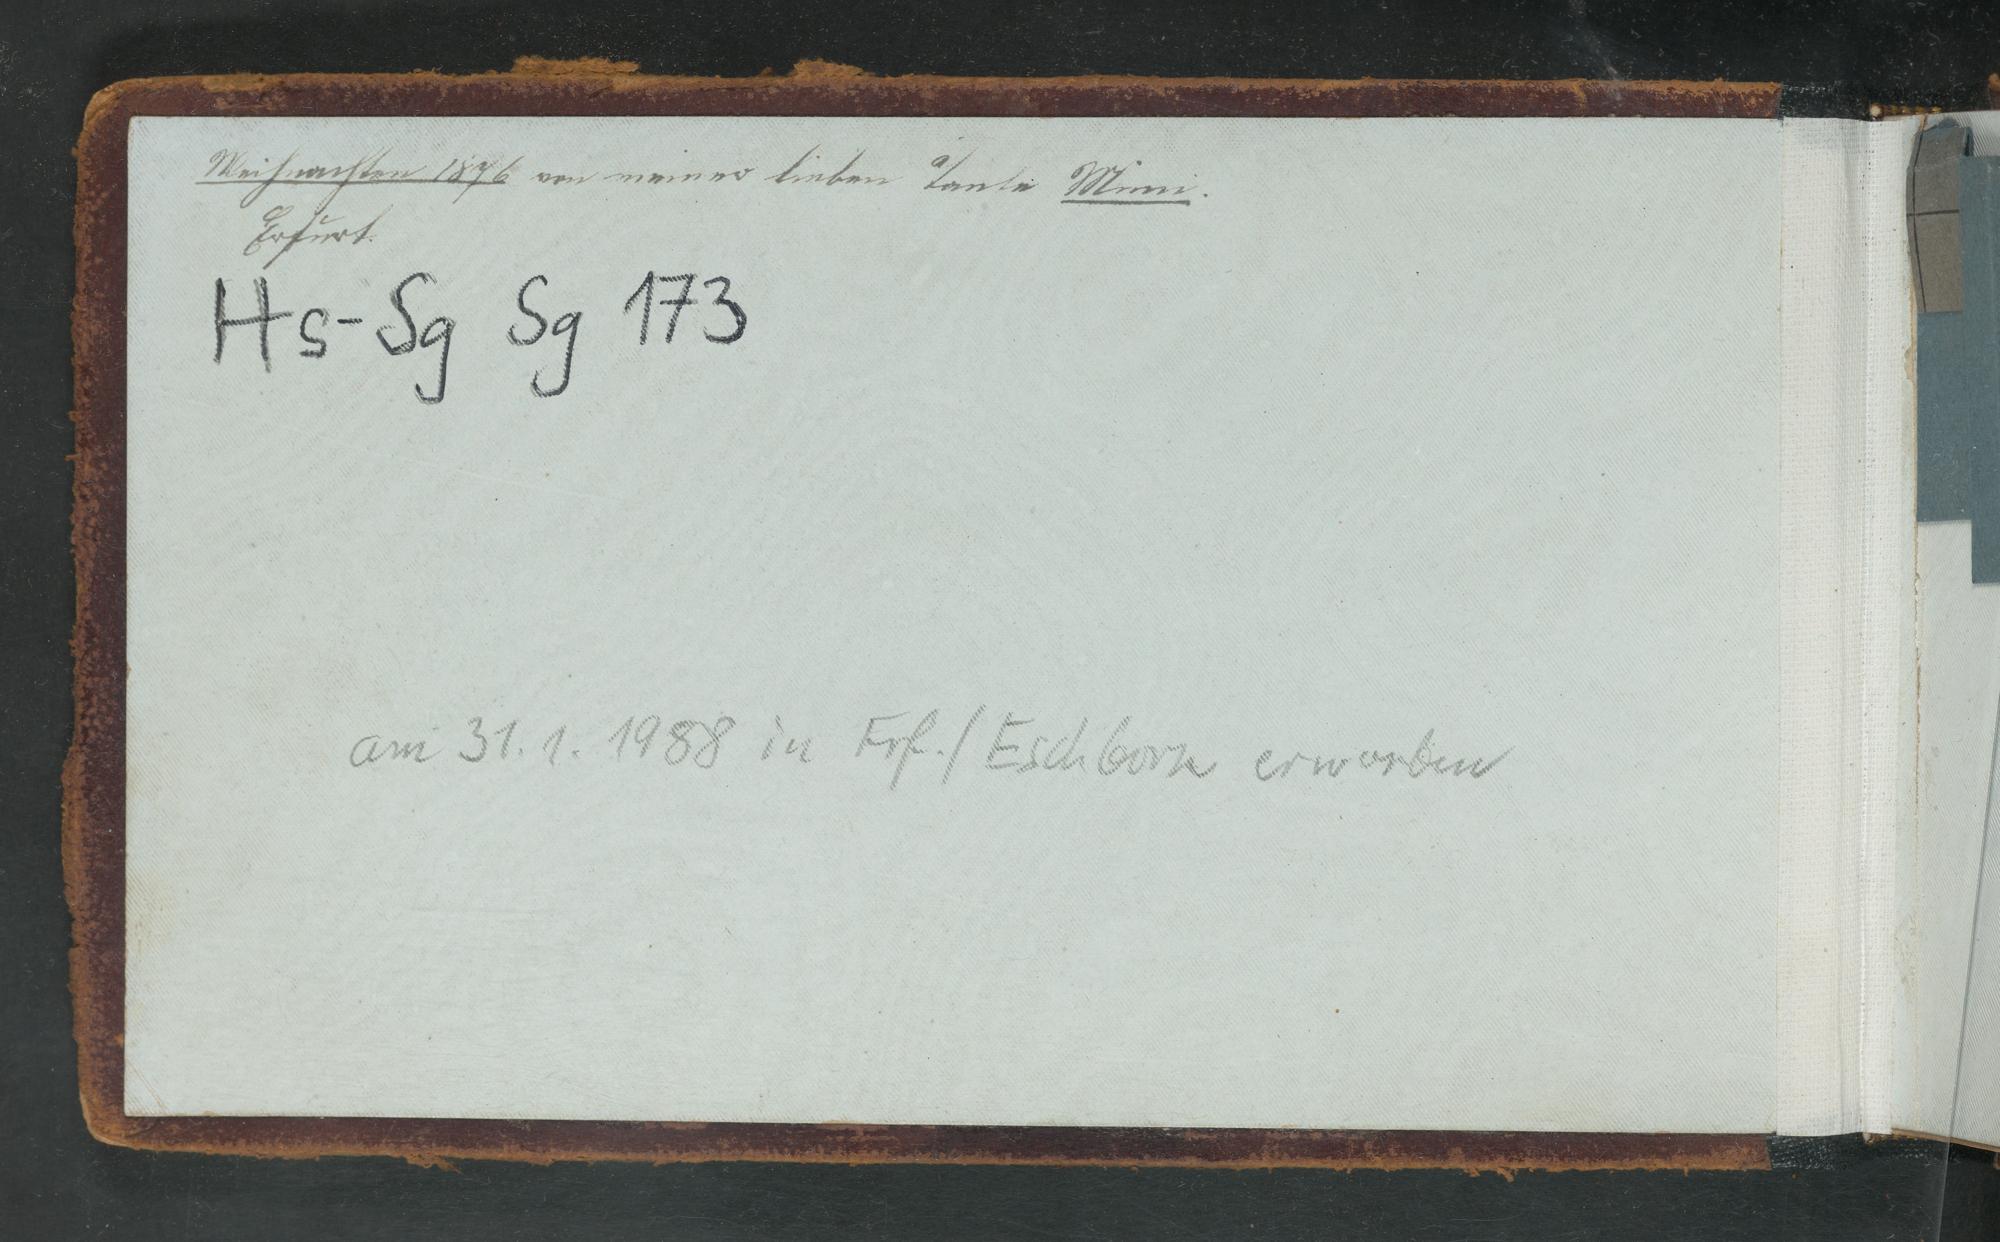 Weihnachten 1876 von meiner lieben Tante Mimi.
Erfurt.
Hs-Sg Sg 173
am 31.1.1988 in Frf./Eschborn erworben